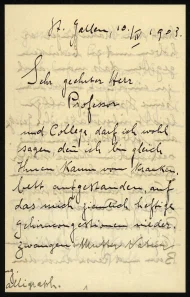 St. Gallen, 10./IV 1903.
Sehr geehrter Herr
Professor
und College darf ich wohl
sagen, denn ich bin gleich
Ihnen kaum vom Kranken-
bett aufgestanden, auf
das mich ziemlich heftige
Gehirncongestionen nieder-
zwangen. Mutter Natur